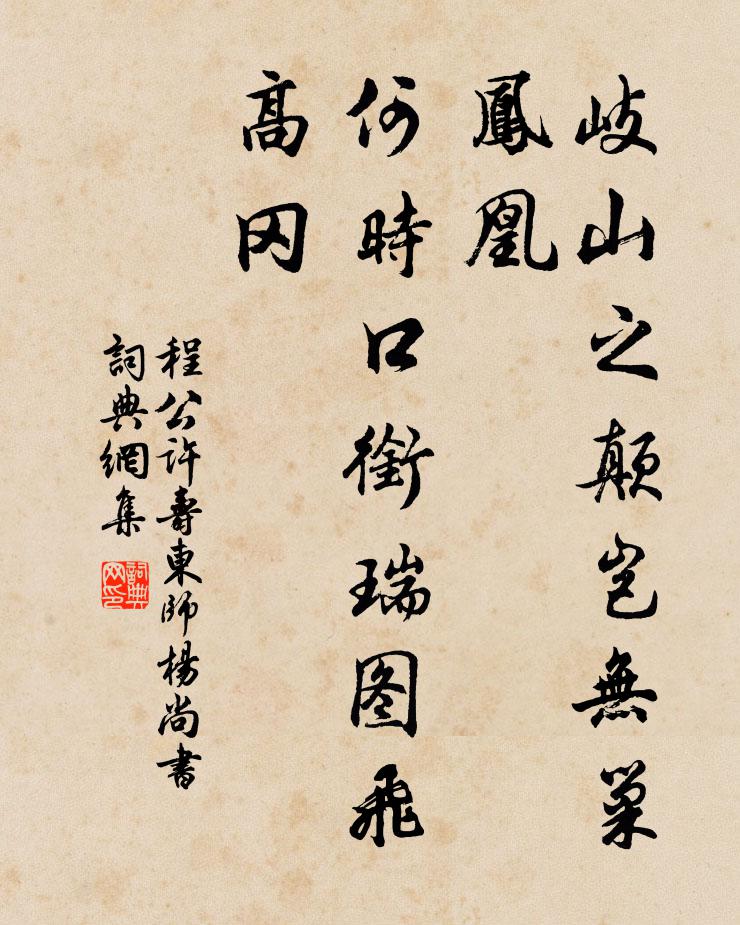 岐山之颠岂無巢
鳳凰
何時口銜瑞图飛
高冈
程公許壽東師楊尚書
詞典網集
詞典网印